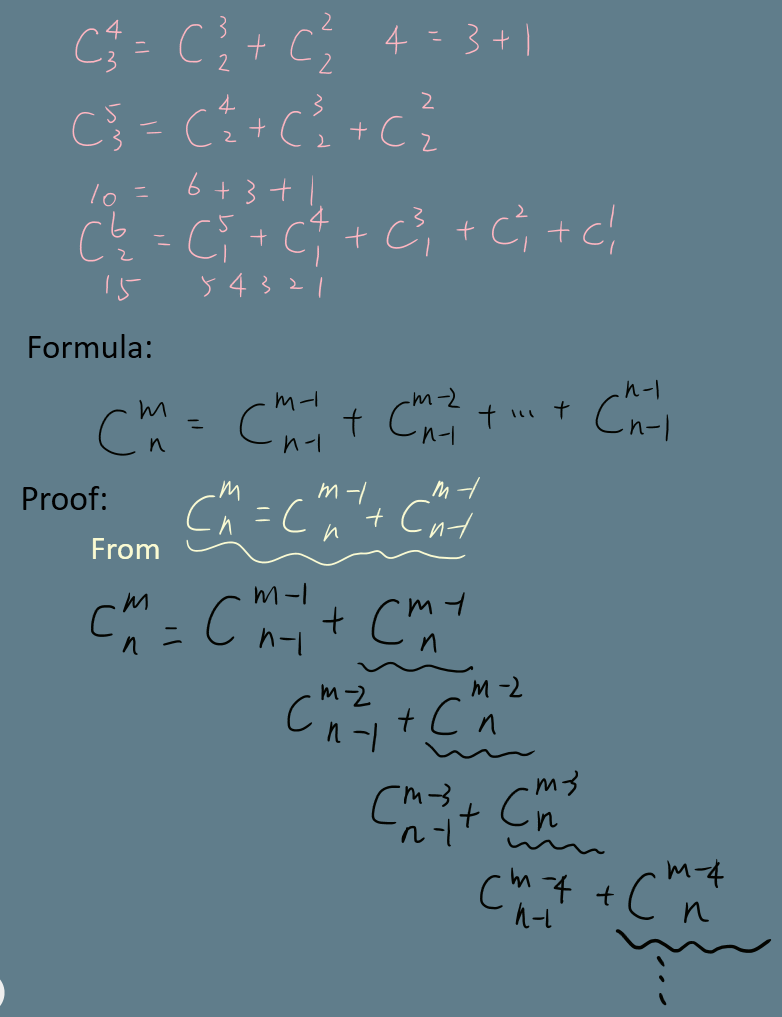 C₃⁴ = C₂³ + C₂² 4 = 3 + 1
C₃⁵ = C₂⁴ + C₂³ + C₂²
10 = 6 + 3 + 1
C₂⁶ = C₁⁵ + C₁⁴ + C₁³ + C₁² + C₁¹
15 5 4 3 2 1
Formula:
Cₙᵐ = Cₙ₋₁ᵐ⁻¹ + Cₙ₋₁ᵐ⁻² + ... + Cₙ₋₁ⁿ⁻¹
Proof:
From Cₙᵐ = Cₙᵐ⁻¹ + Cₙ₋₁ᵐ⁻¹
Cₙᵐ = Cₙ₋₁ᵐ⁻¹ + Cₙᵐ⁻¹
Cₙ₋₁ᵐ⁻² + Cₙᵐ⁻²
Cₙ₋₁ᵐ⁻³ + Cₙᵐ⁻³
Cₙ₋₁ᵐ⁻⁴ + Cₙᵐ⁻⁴
⋮